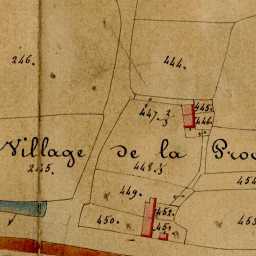 246.
444.
445.
447. 2/3
446.
Village de la Pro
245.
448. 3
454
449.
452.
450.
451.
453